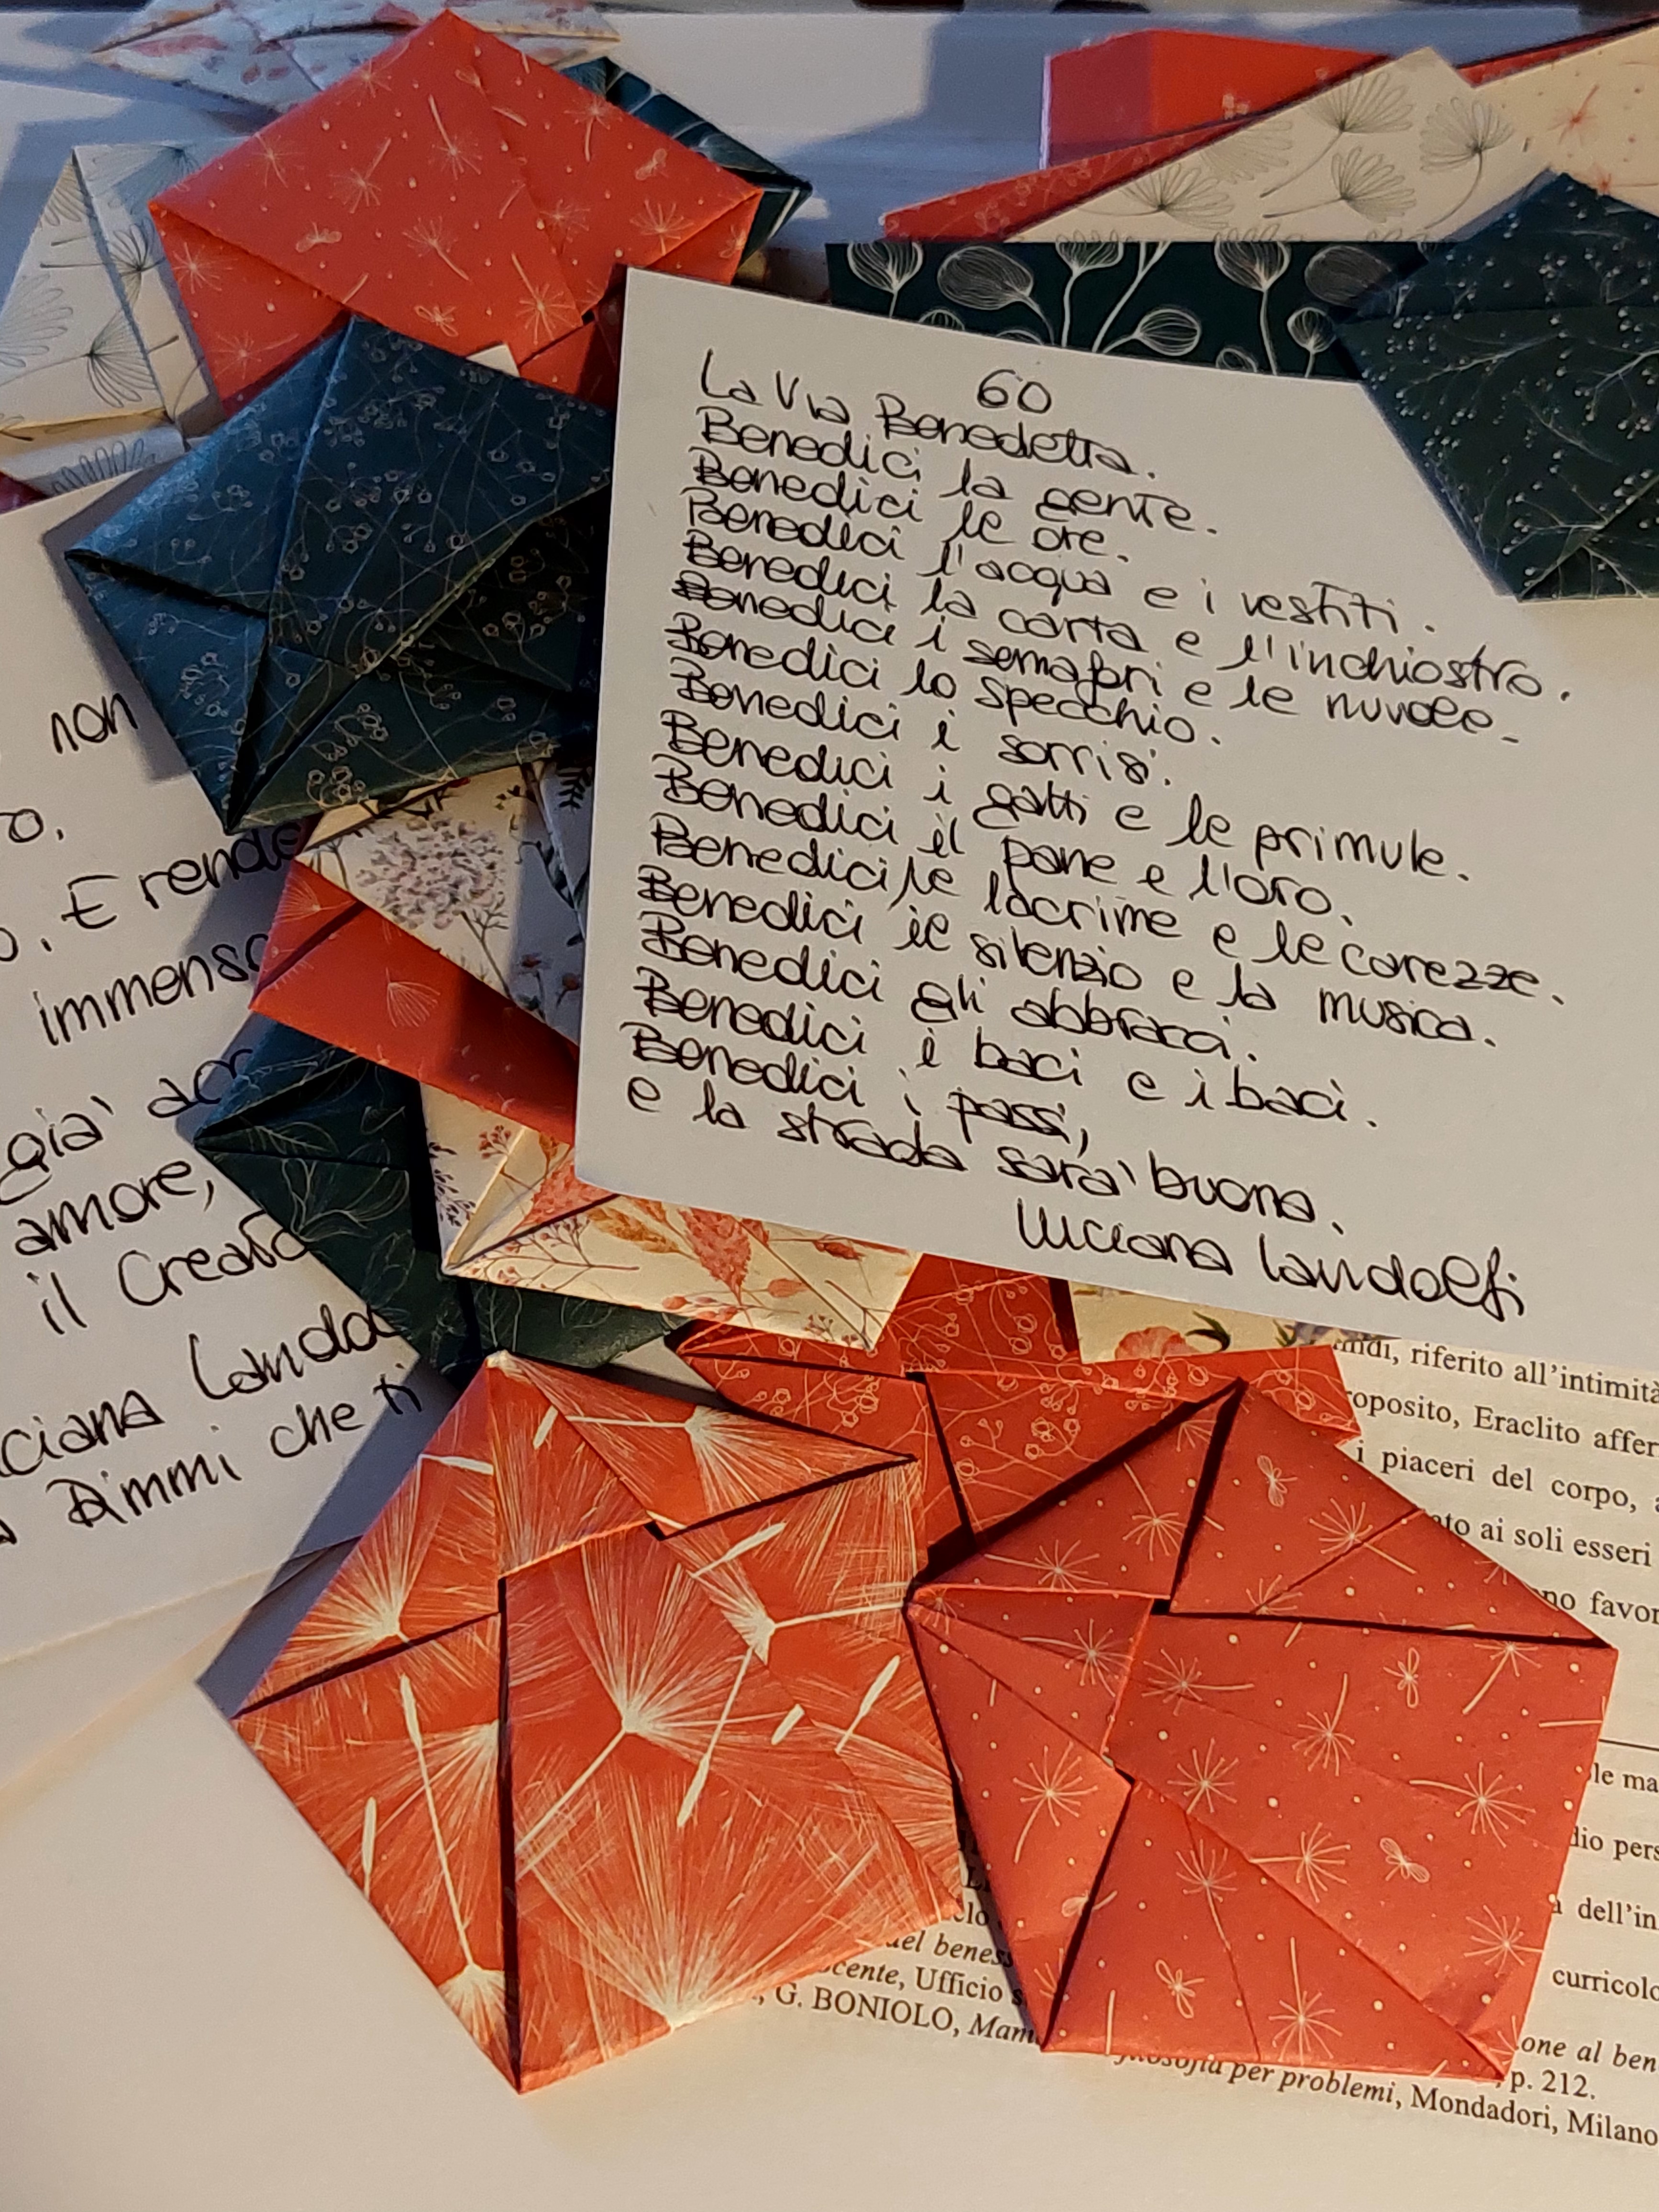 60
La Via Benedetta.
Benedici la gente.
Benedici le ore.
Benedici l'acqua e i vestiti.
Benedici la carta e l'inchiostro.
Benedici i semafori e le nuvole.
Benedici lo specchio.
Benedici i sorrisi.
Benedici i gatti e le primule.
Benedici il pane e l'oro.
Benedici le lacrime e le carezze.
Benedici il silenzio e la musica.
Benedici gli abbracci.
Benedici i baci e i baci.
Benedici i passi,
e la strada sarà buona.
Luciana Landolfi
non
E rende
immenso
già
amore,
il Creato
Dimmi che ti
riferito all'intimità
Eraclito
i piaceri del corpo,
ai soli esseri
dell'in
Ufficio
G. BONIOLO,
al ben
p. 212.
filosofia per problemi, Mondadori, Milano